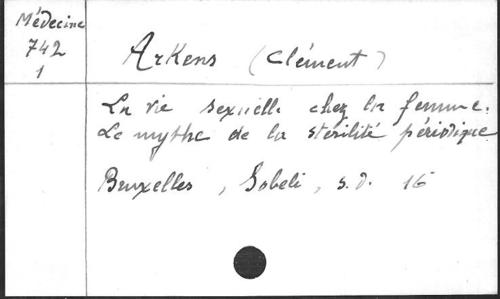 Médecine
742
1
Arkens (Clément)
La vie sexuelle chez la femme.
Le mythe de la stérilité périodique
Bruxelles, Sobeli, s.d. 16